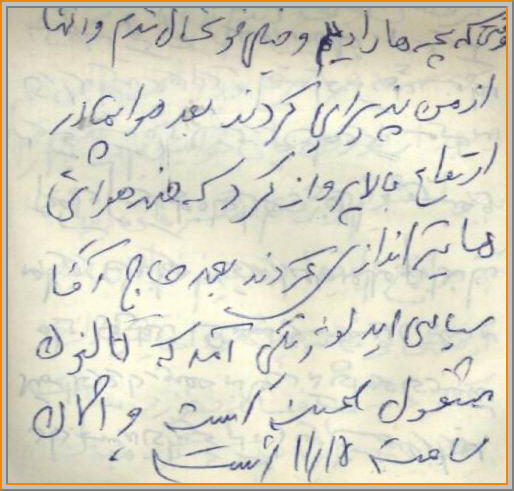 وقتی که بچه ها را دیدم و خیلی خوشحال شدم و آنها
از من پذیرایی کردند بعد هواپیما در
ارتفاع بالا پرواز کرد که ضد هوائی
ها تیراندازی می کردند بعد حاج آقا
سیاسی آمد که
مشغول است و الان
ساعت ۱۱/۱۸ است